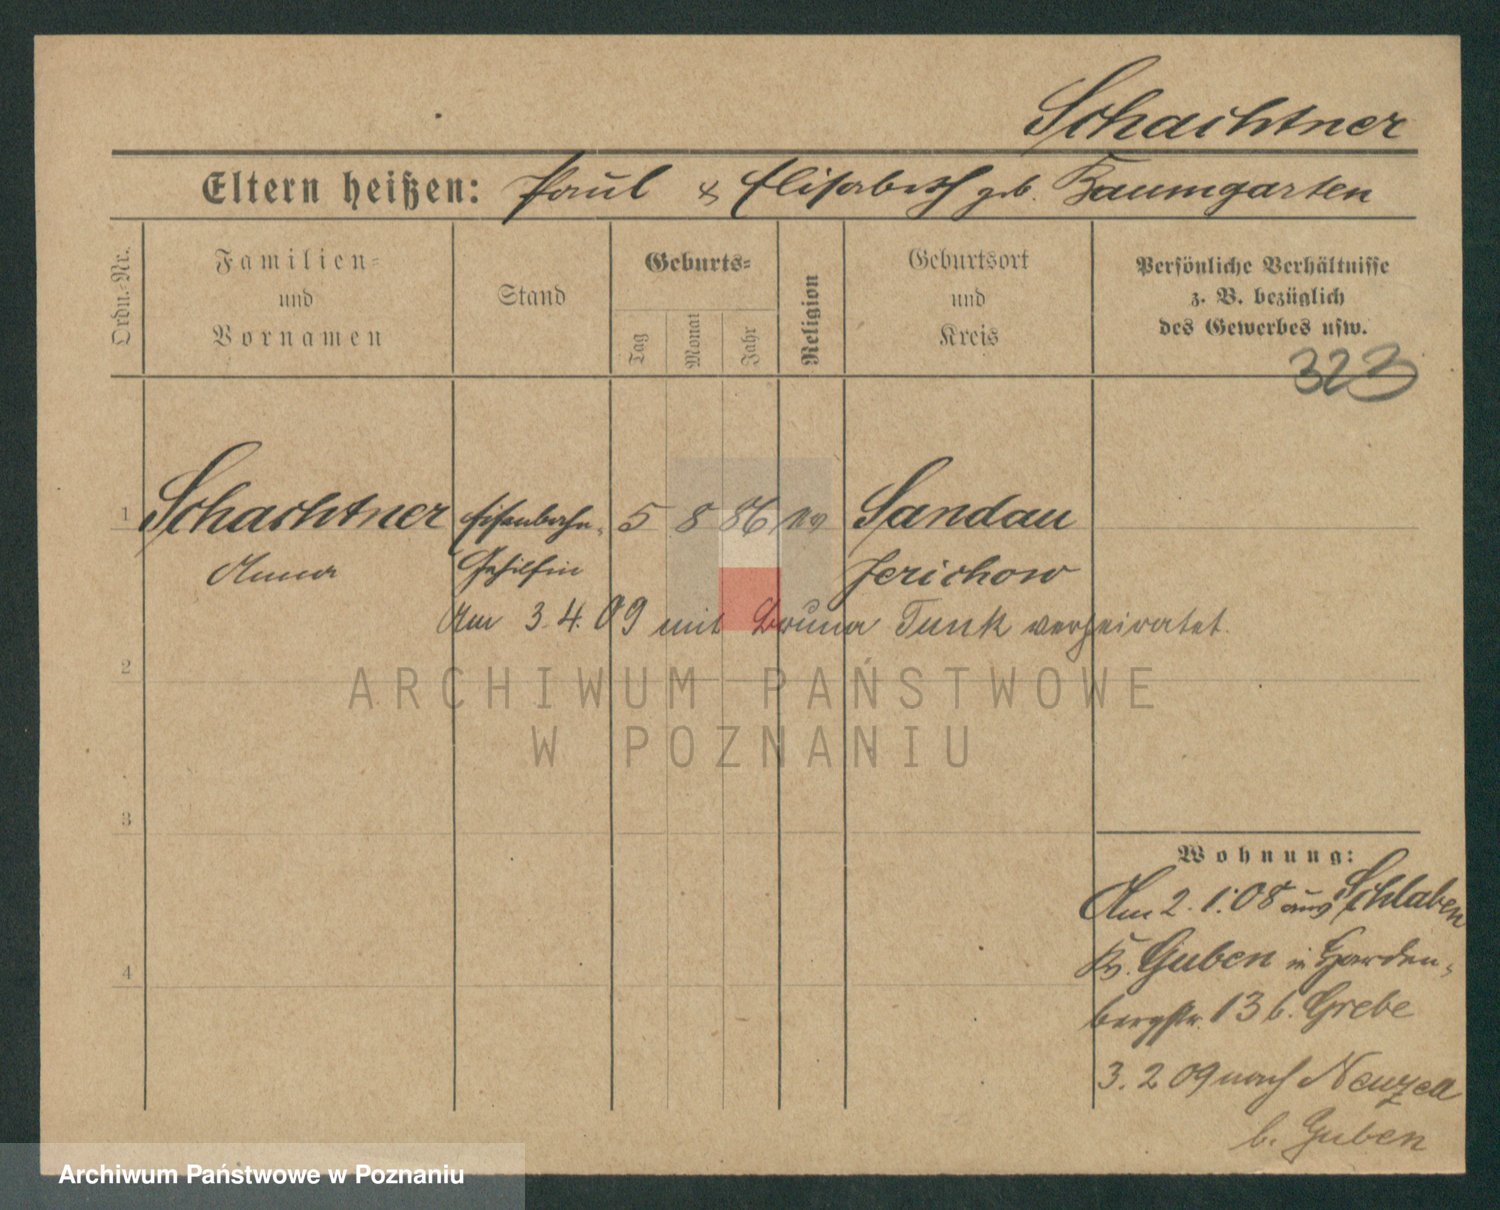 Schachtner
Eltern heißen: Paul & Elisabeth geb. Baumgarten
Ordn.-Nr.
Familien-
und
Vornamen
Stand
Geburts-
Tag
Monat
Jahr
Religion
Geburtsort
und
Kreis
Persönliche Verhältnisse
z. B. bezüglich
des Gewerbes usw.
323
1 Schachtner Eisenbahn- 5 8 86 ev Sandau
Anna Gehilfin Jerichow
Am 3.4.09 mit Bruno Tunk verheiratet.
2
ARCHIWUM PAŃSTWOWE
W POZNANIU
3
Wohnung:
Am 2.1.08 aus Schlaben
Kr. Guben in Harden-
4
bergstr. 13 b. Grebe
3.2 09 nach Neuzell
b. Guben
Archiwum Państwowe w Poznaniu